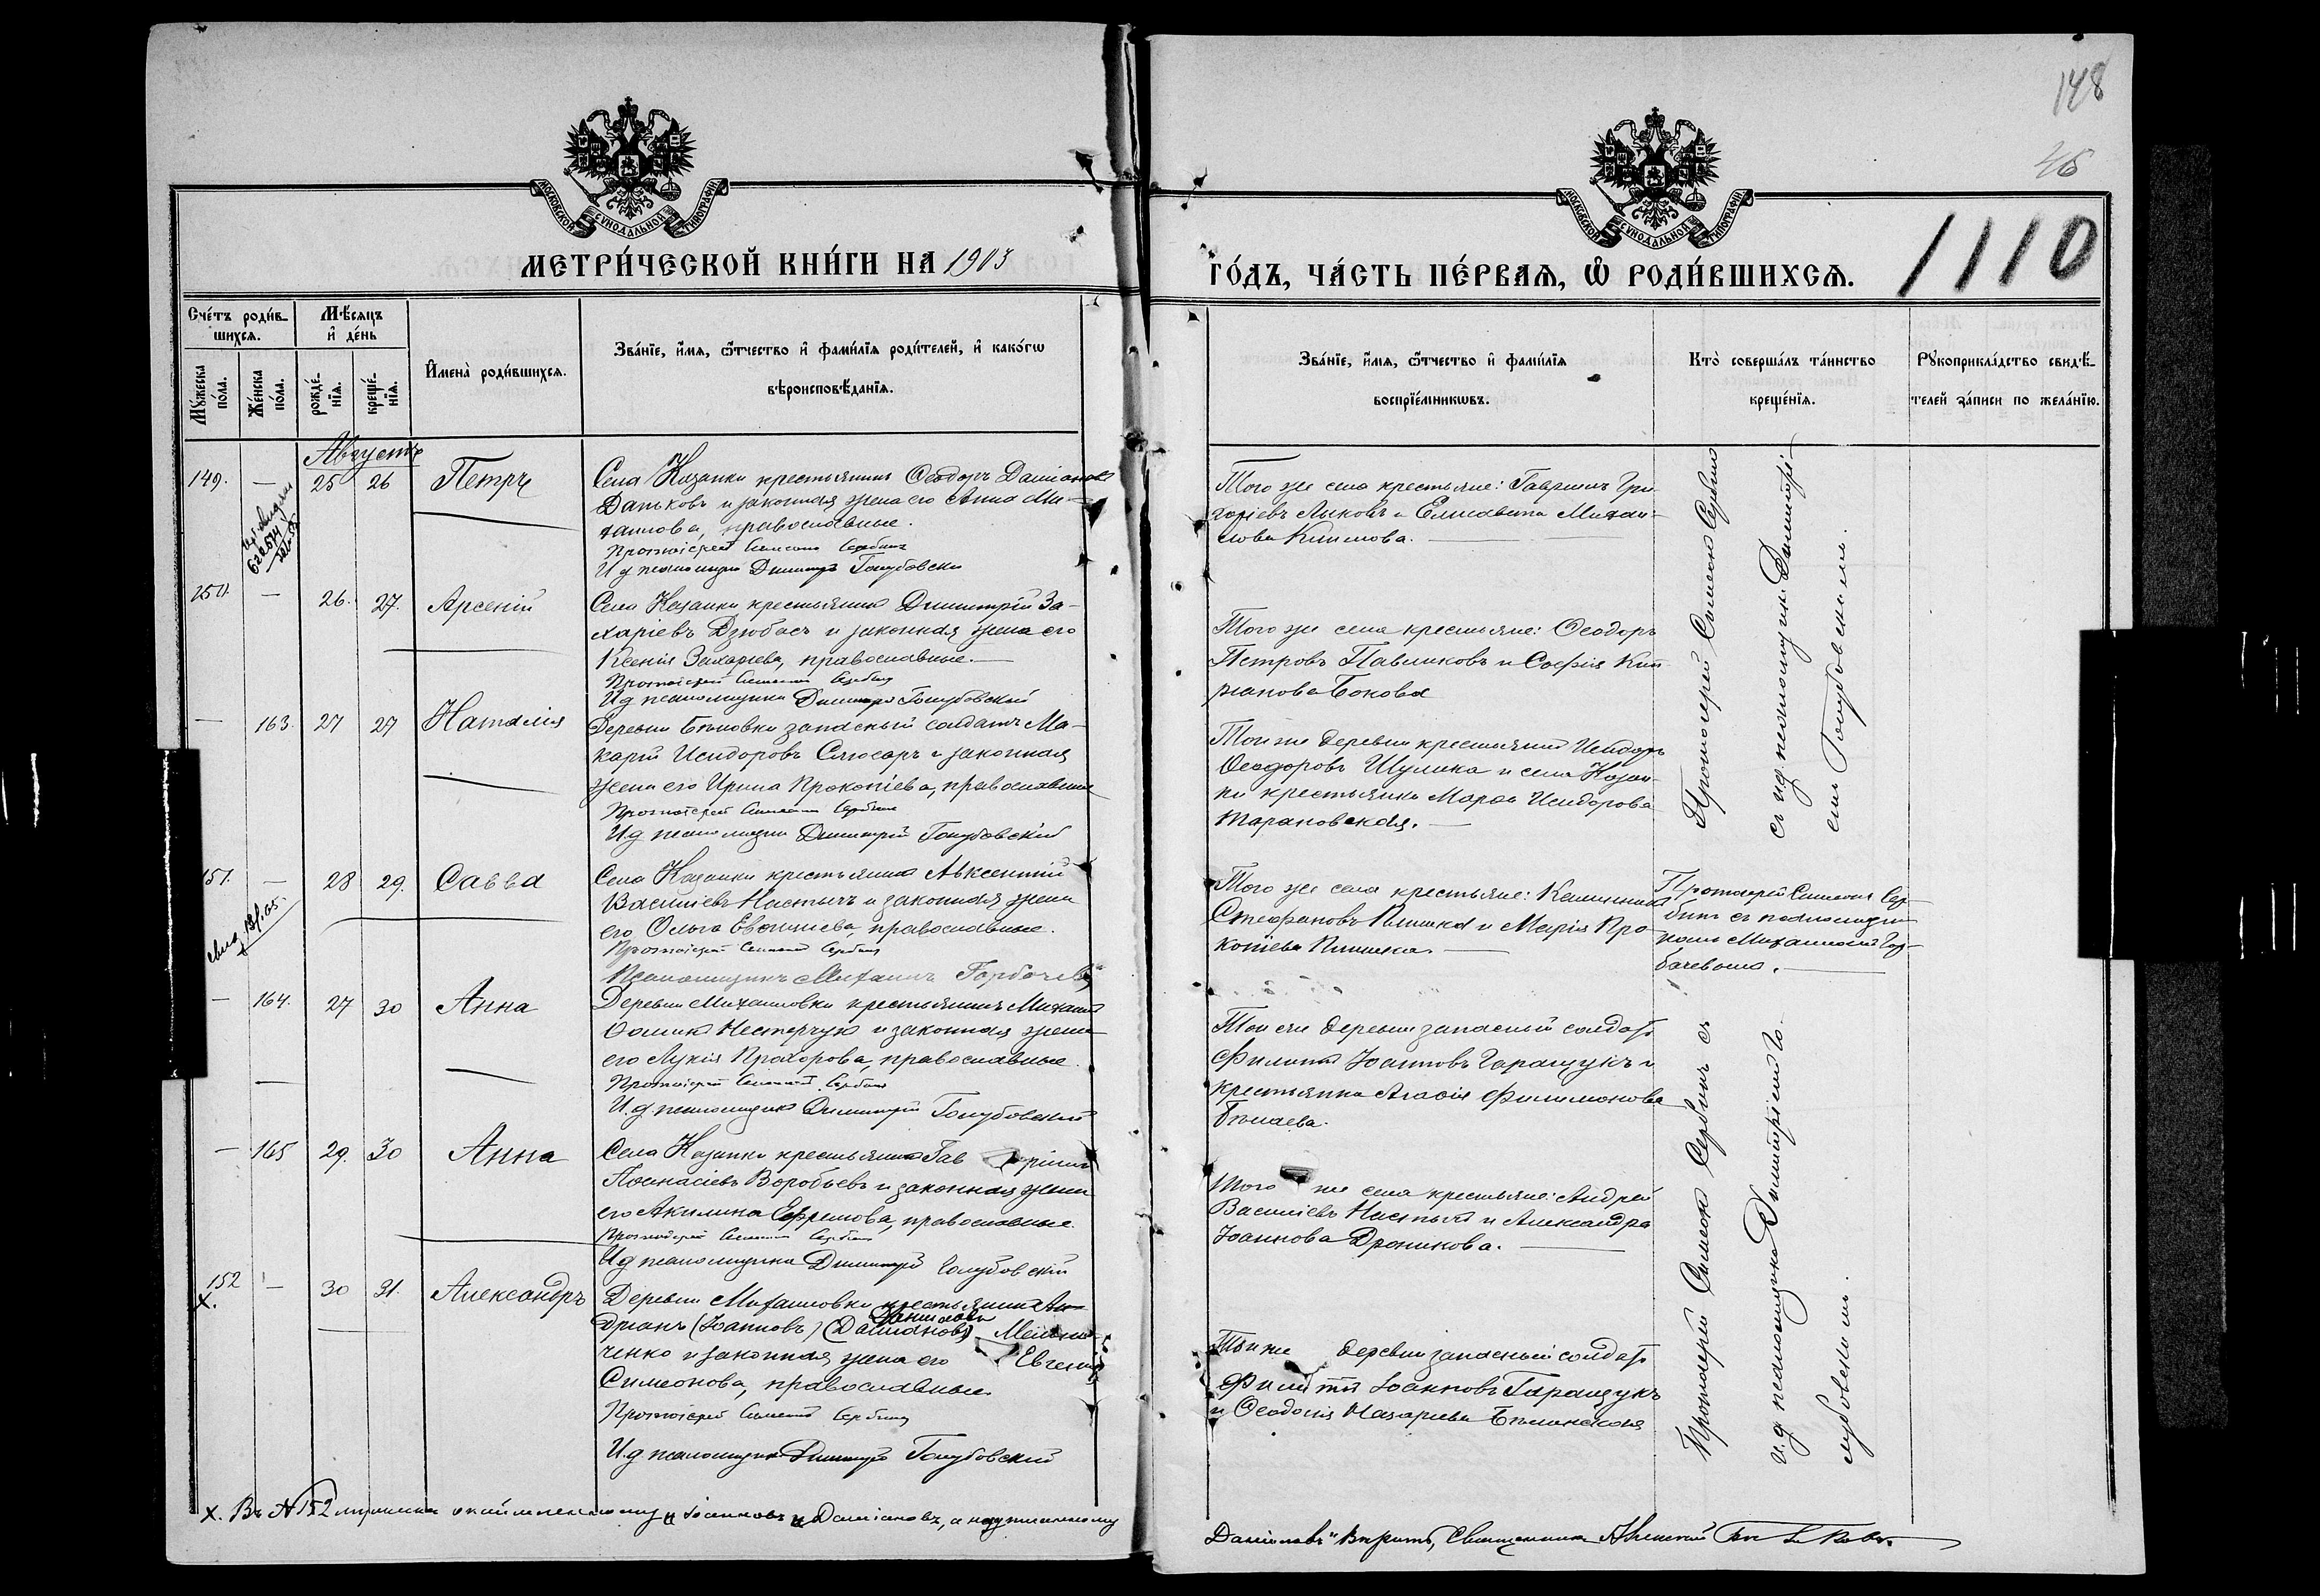 148
46
1110
МОСКОВСКОЙ СУНОДАЛЬНОЙ ТИПОГРАФІИ
МОСКОВСКОЙ СУНОДАЛЬНОЙ ТИПОГРАФІИ
МЕТРИ́ЧЕСКОЙ КНИ́ГИ НА 1903
ГО́ДЪ, ЧА́СТЬ ПЕ́РВАЯ, Ѡ҆ РОДИ́ВШИХСЯ.
Сче́тъ роди́в-
шихся.
Мѣ́сяцъ
и҆ де́нь
Му́жеска
по́ла.
Же́нска
по́ла.
рожде́-
нїя.
креще́-
нїя.
И҆мена̀ роди́вшихся.
Зва́нїе, и҆́мя, ѻ҆́тчество и҆ фами́лїя роди́телей, и҆ како́гѡ
вѣроисповѣ́данїя.
Зва́нїе, и҆́мя, ѻ҆́тчество и҆ фами́лїя
воспрїе́мникѡвъ.
Кто̀ соверша́лъ та́инство
креще́нїя.
Рꙋкоприкла́дство свидѣ́-
телей за́писи по жела́нїю.
Августъ
149. — 25 26 Петръ
Села Казанки крестьянинъ Ѳеодоръ Даміановъ
Даньковъ и законная жена его Анна Ми-
хаилова, православные.
Протоіерей Симеонъ Сербинъ
И д псаломщика Димитрій Голубовскій
Того же села крестьяне: Гавріилъ Гри-
горіевъ Лыковъ и Елисавета Михаи-
лова Климова.
150. — 26. 27. Арсеній
Села Казанки крестьянинъ Димитрій За-
харіевъ Дзюбасъ и законная жена его
Ксенія Захаріева, православные.
Протоіерей Симеонъ Сербинъ
И д псаломщика Димитрій Голубовскій
Того же села крестьяне: Ѳеодоръ
Петровъ Павликовъ и Софія Кип-
ріанова Бокова
— 163. 27 27 Наталія
Деревни Бѣловки запасный солдатъ Ма-
карій Исидоровъ Слюсарь и законная
жена его Ирина Прокопіева, православные
Протоіерей Симеонъ Сербинъ
И.д псаломщика Димитрій Голубовскій
Той же деревни крестьянинъ Исидоръ
Ѳеодоровъ Шулика и села Казан-
ки крестьянка Марѳа Исидорова
Тарановская.
Протоіерей Симеонъ Сербинъ
съ и.д псаломщика Димитрі-
емъ Голубовскимъ.
151. — 28 29. Савва
Села Казанки крестьянинъ Авксентій
Василіевъ Настычъ и законная жена
его Ольга Евѳиміева, православные.
Протоіерей Симеонъ Сербинъ
Псаломщикъ Михаилъ Горбачевъ
Того же села крестьяне: Каллиникъ
Стефановъ Плишка и Марія Про-
копіева Плишка.
Протоіерей Симеонъ Сер-
бинъ съ псаломщи-
комъ Михаиломъ Гор-
бачевымъ.
— 164. 27 30 Анна
Деревни Михаиловки крестьянинъ Михаилъ
Ѳоминъ Нестерчукъ и законная жена
его Лукія Прохорова, православные.
Протоіерей Симеонъ Сербинъ
И.д. псаломщика Димитрій Голубовскій
Той же деревни запасный солдатъ
Филиппъ Іоанновъ Гаращукъ и
крестьянка Агаѳія Филимонова
Бѣлаева.
— 165 29. 30 Анна
Села Казанки крестьянинъ Гавріилъ
Аѳанасіевъ Воробьевъ и законная жена
его Акилина Ефремова, православные.
Протоіерей Симеонъ Сербинъ
И д псаломщика Димитрій Голубовскій
Того же села крестьяне: Андрей
Василіевъ Настычъ и Александра
Іоаннова Дроникова.
152 — 30 31. Александръ
х.
Деревни Михаиловки крестьянинъ Ан-
Даниловъ
дріанъ (Іоанновъ) (Даміановъ) Мельни-
ченко и законная жена его Евгенія
Симеонова, православные.
Протоіерей Симеонъ Сербинъ
И.д псаломщика Димитрій Голубовскій
Той же деревни запасный солдатъ
Филиппъ Іоанновъ Гаращукъ
и Ѳеодосія Назаріева Бѣлинская
Протоіерей Симеонъ Сербинъ съ
и.д псаломщика Димитріемъ Го-
лубовскимъ.
х. Въ № 152
Іоанновъ и Даміановъ, а
Даниловъ" вѣрить, Священникъ